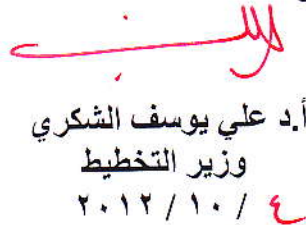 أ.د علي يوسف الشكري
وزير التخطيط
٤ / ١٠ / ٢٠١٢